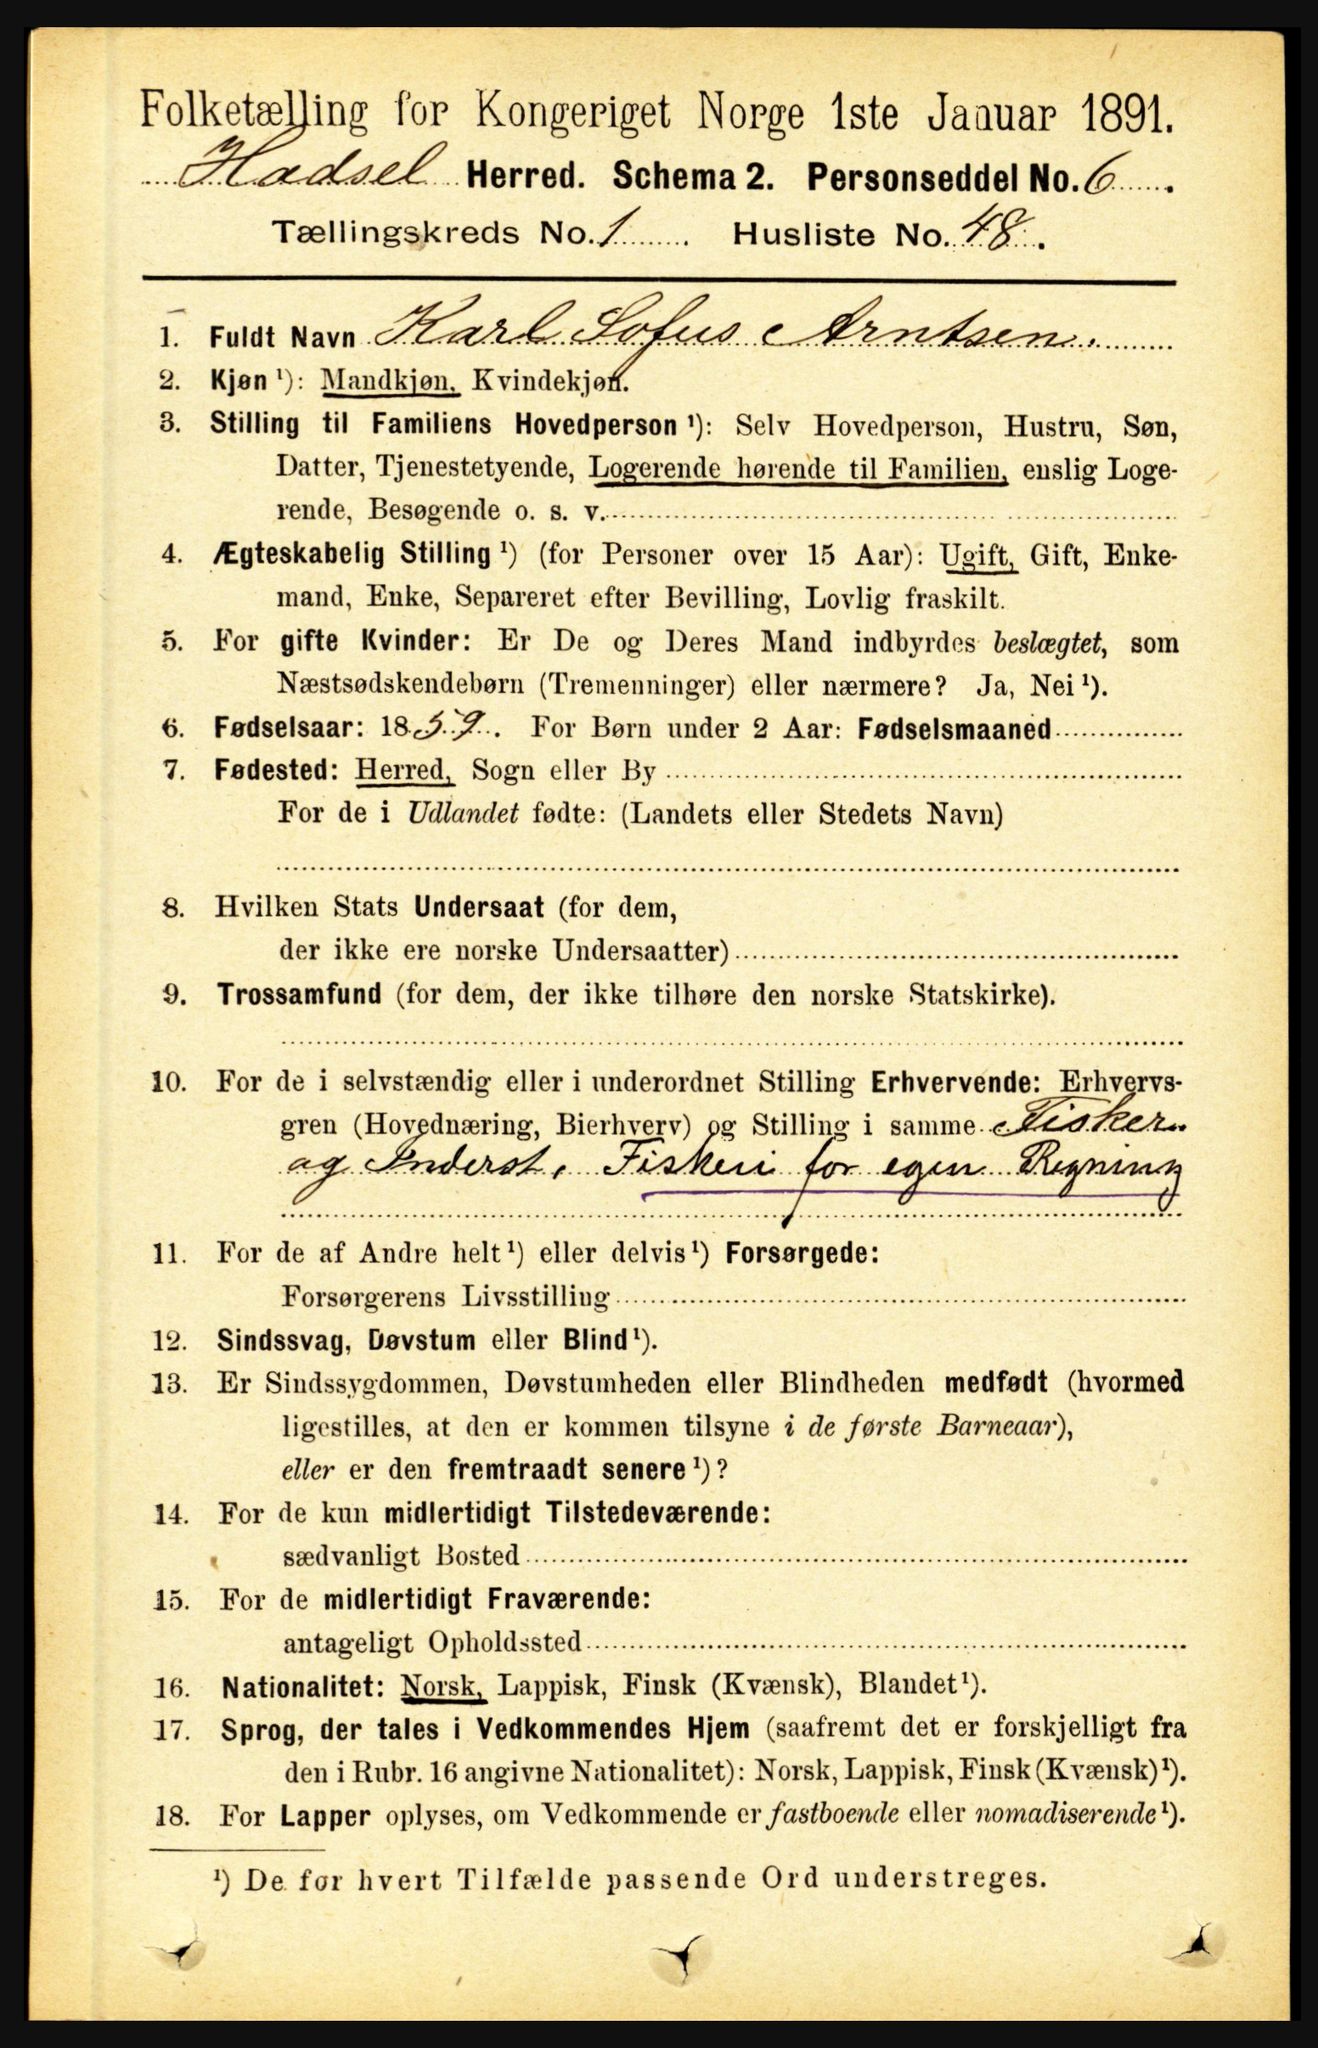 Folketælling for Kongeriget Norge 1ste Januar 1891.
Hadsel Herred. Schema 2. Personseddel No. 6
Tællingskreds No. 1 Husliste No. 48.
1. Fuldt Navn Karl Sofus Arntsen.
2. Kjøn ¹): Mandkjøn, Kvindekjøn.
3. Stilling til Familiens Hovedperson ¹): Selv Hovedperson, Hustru, Søn,
Datter, Tjenestetyende, Logerende hørende til Familien, enslig Loge-
rende, Besøgende o. s. v.
4. Ægteskabelig Stilling ¹) (for Personer over 15 Aar): Ugift, Gift, Enke-
mand, Enke, Separeret efter Bevilling, Lovlig fraskilt.
5. For gifte Kvinder: Er De og Deres Mand indbyrdes beslægtet, som
Næstsødskendebørn (Tremenninger) eller nærmere? Ja, Nei ¹).
6. Fødselsaar: 1859. For Børn under 2 Aar: Fødselsmaaned
7. Fødested: Herred, Sogn eller By
For de i Udlandet fødte: (Landets eller Stedets Navn)
8. Hvilken Stats Undersaat (for dem,
der ikke ere norske Undersaatter)
9. Trossamfund (for dem, der ikke tilhøre den norske Statskirke).
10. For de i selvstændig eller i underordnet Stilling Erhvervende: Erhvervs-
gren (Hovednæring, Bierhverv) og Stilling i samme Fisker
og Inderst, Fiskeri for egen Regning
11. For de af Andre helt ¹) eller delvis ¹) Forsørgede:
Forsørgerens Livsstilling
12. Sindssvag, Døvstum eller Blind ¹).
13. Er Sindssygdommen, Døvstumheden eller Blindheden medfødt (hvormed
ligestilles, at den er kommen tilsyne i de første Barneaar),
eller er den fremtraadt senere ¹)?
14. For de kun midlertidigt Tilstedeværende:
sædvanligt Bosted
15. For de midlertidigt Fraværende:
antageligt Opholdssted
16. Nationalitet: Norsk, Lappisk, Finsk (Kvænsk), Blandet ¹).
17. Sprog, der tales i Vedkommendes Hjem (saafremt det er forskjelligt fra
den i Rubr. 16 angivne Nationalitet): Norsk, Lappisk, Finsk (Kvænsk) ¹).
18. For Lapper oplyses, om Vedkommende er fastboende eller nomadiserende ¹).
¹) De for hvert Tilfælde passende Ord understreges.